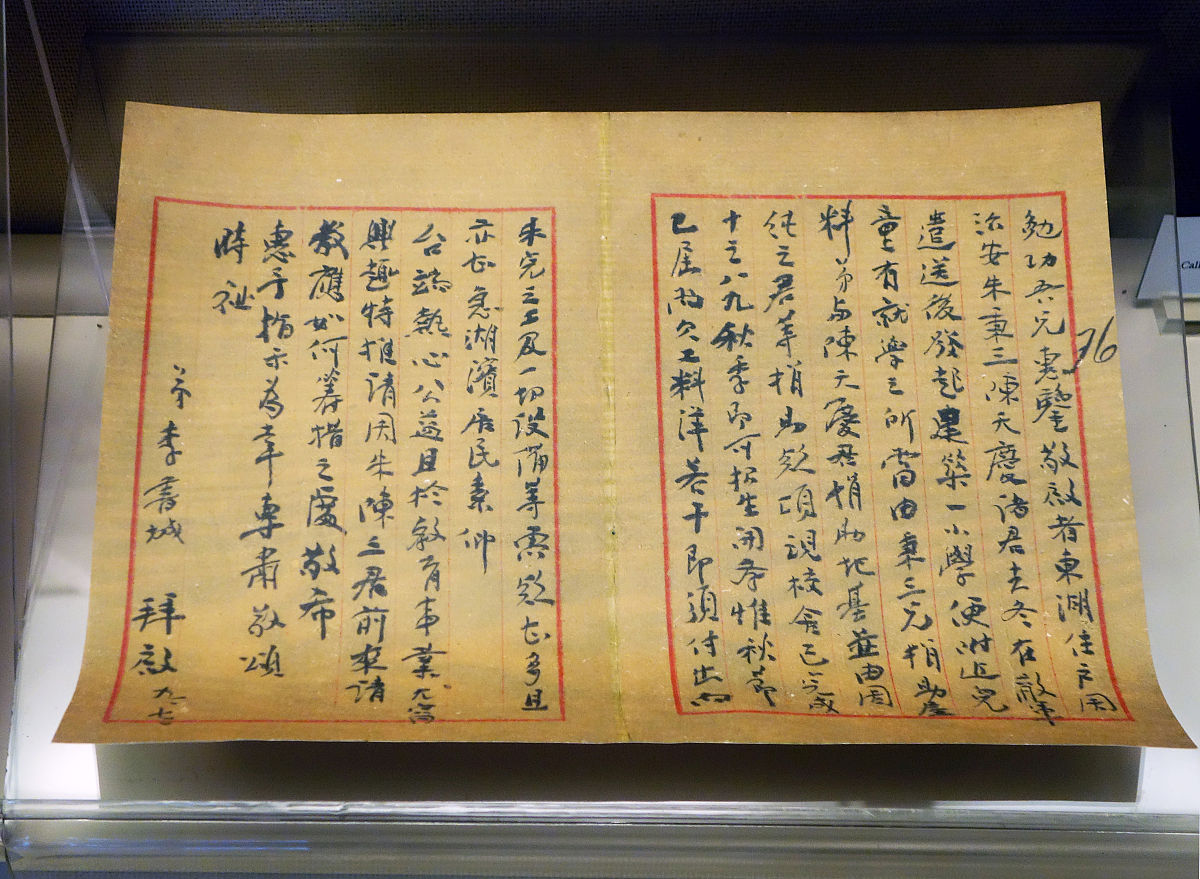 勉功吾兄惠鑒敬啟者東湖住戶周
治安朱秉三陳天慶諸君去冬在敝軍
遣送後發起建築一小學便附近兒
童有就學之所當由秉三兄捐助屋
料弟與陳天慶君捐助地基並由周
純之君等捐助款項現校舍已完成
十之八九秋季即可招生開學惟秋節
已屆尚欠工料洋若干即須付出而
未完之工及一切設備等需款甚多且
亦甚急湖濱居民素仰
台端熱心公益且於教育事業尤富
興趣特推請周朱陳三君前來請
教應如何籌措之處敬希
惠予指示為幸專肅敬頌
時祉
弟李書城
拜啟 九、七
76
Call